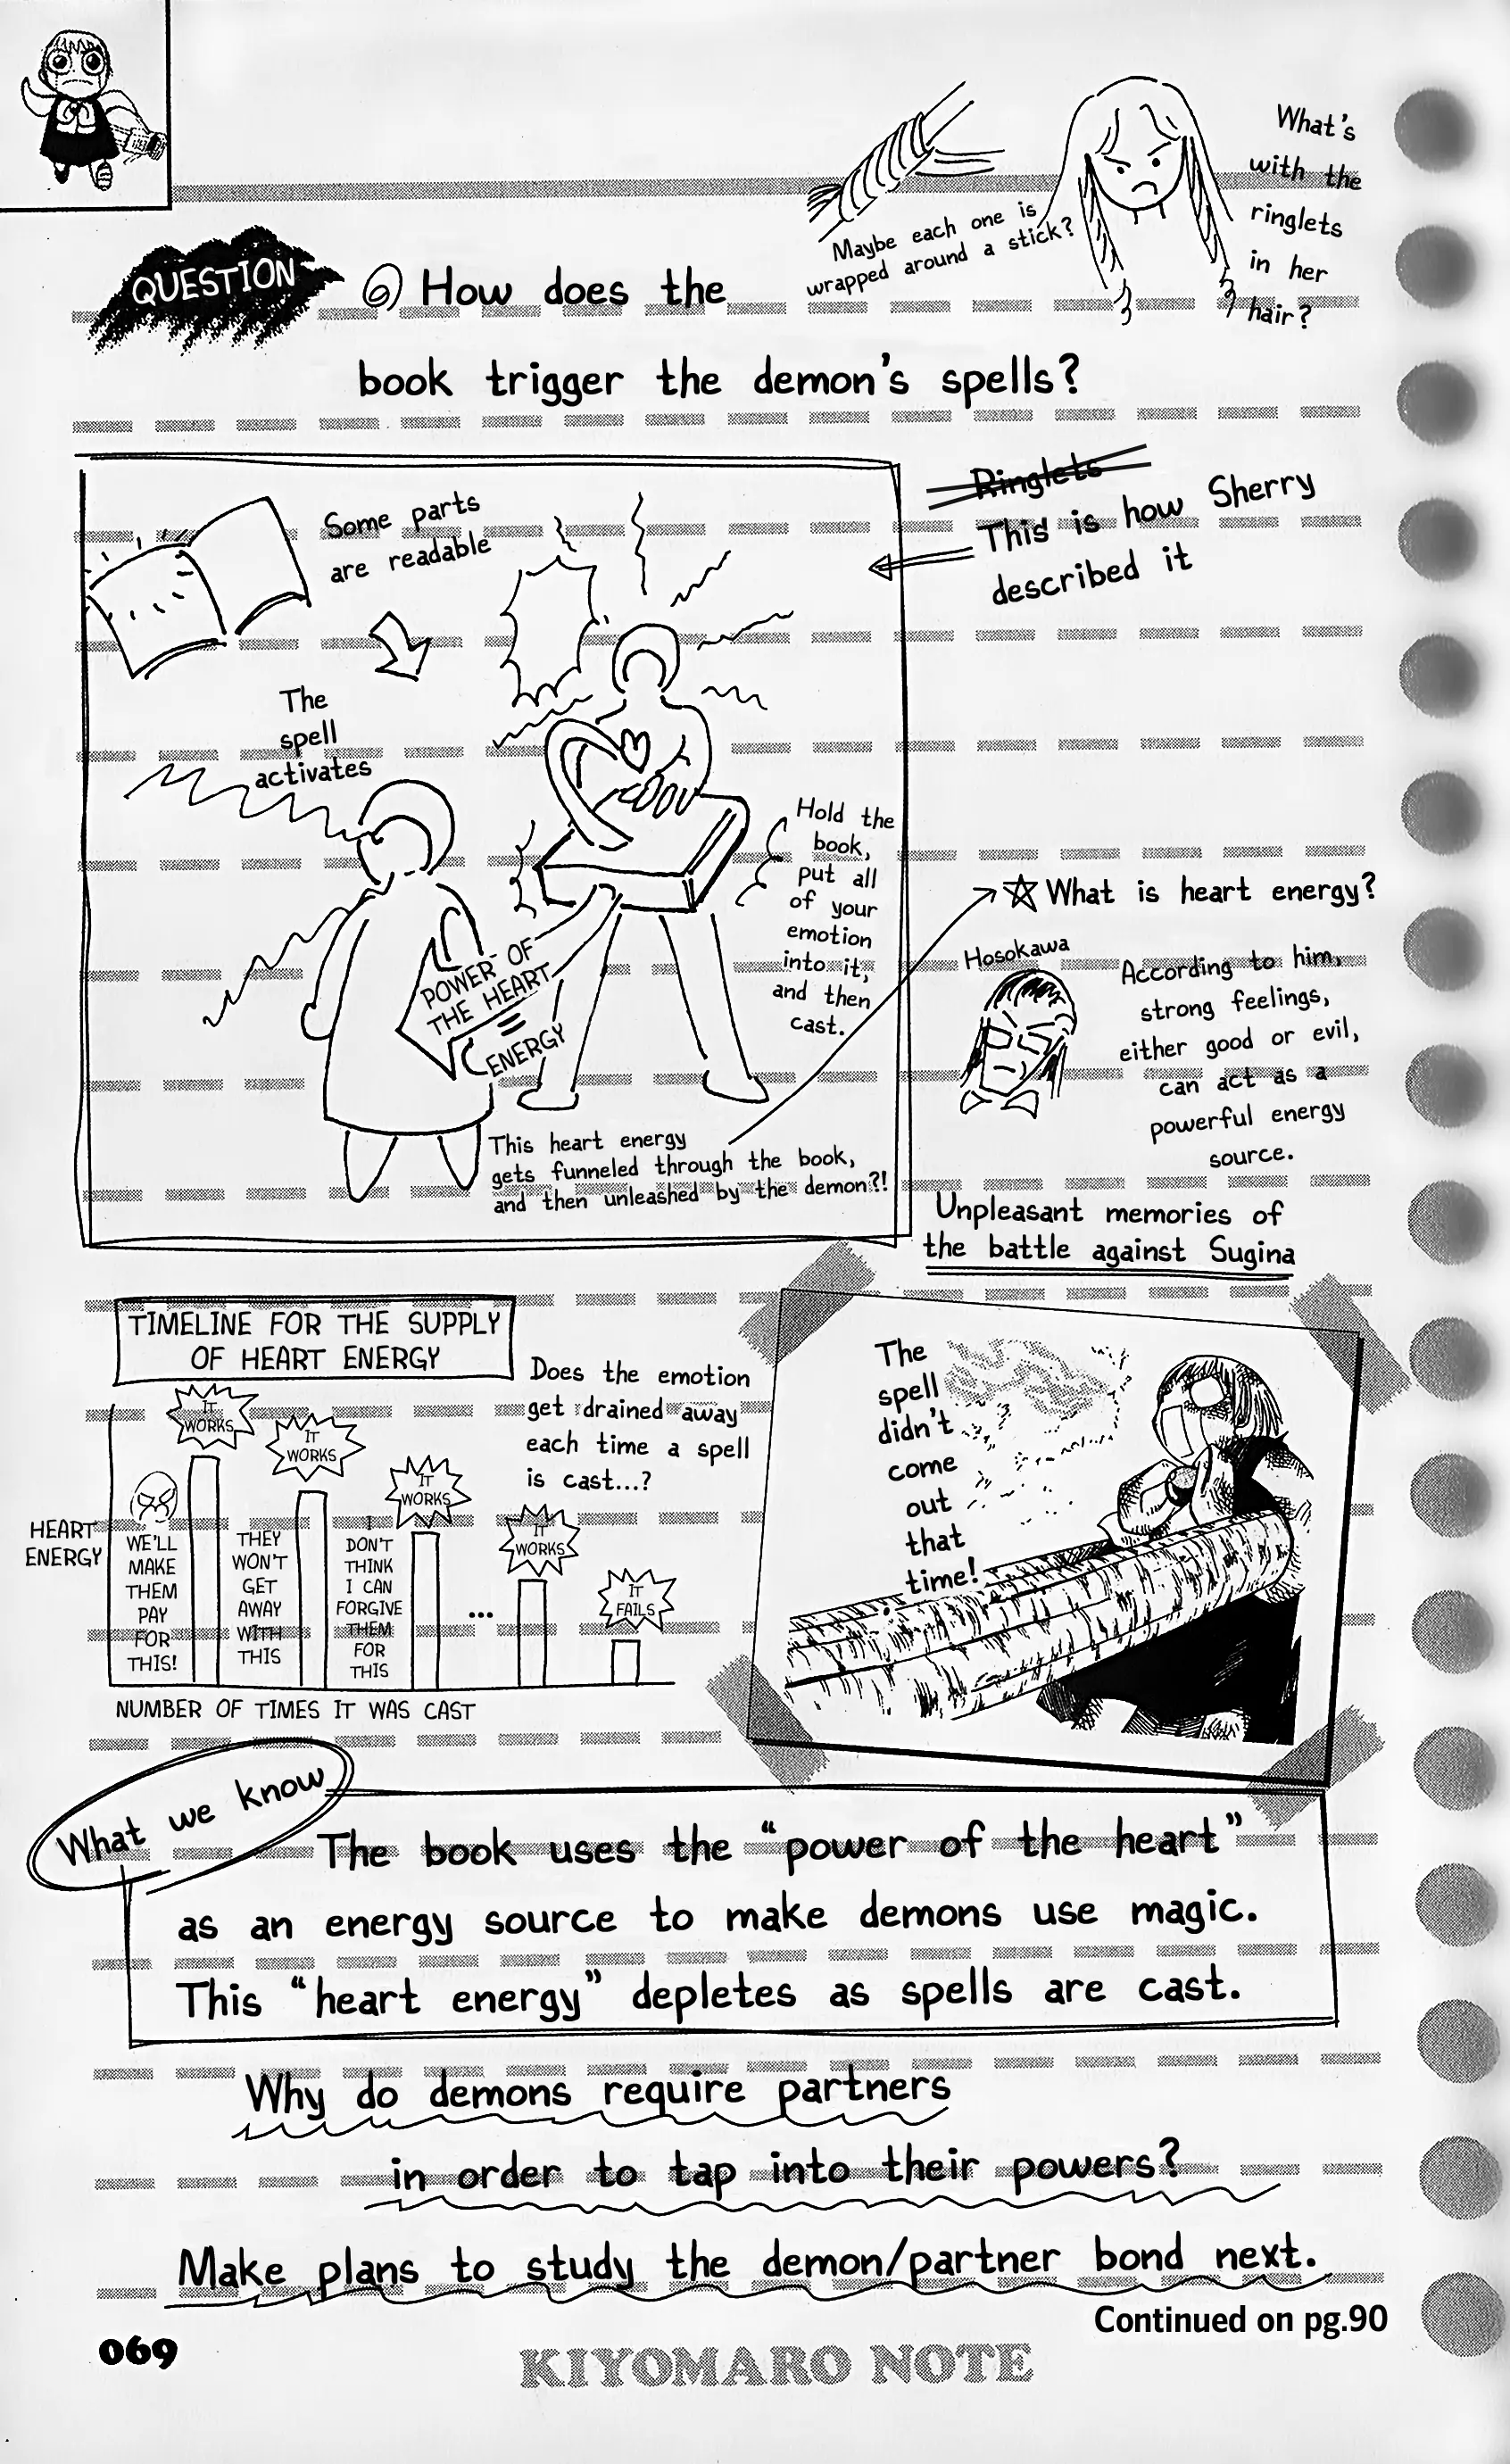 What's
with the
ringlets
in her
hair?
Maybe each one is
wrapped around a stick?
QUESTION
⑥ How does the
book trigger the demon's spells?
Ringlets
This is how Sherry
described it
Some parts
are readable
The
spell
activates
Hold the
book,
put all
of your
emotion
into it,
and then
cast.
POWER OF
THE HEART
=
ENERGY
This heart energy
gets funneled through the book,
and then unleashed by the demon?!
☆ What is heart energy?
Hosokawa
According to him,
strong feelings,
either good or evil,
can act as a
powerful energy
source.
Unpleasant memories of
the battle against Sugina
The
spell
didn't
come
out
that
time!
TIMELINE FOR THE SUPPLY
OF HEART ENERGY
Does the emotion
get drained away
each time a spell
is cast...?
HEART
ENERGY
WE'LL
MAKE
THEM
PAY
FOR
THIS!
IT
WORKS
THEY
WON'T
GET
AWAY
WITH
THIS
IT
WORKS
I
DON'T
THINK
I CAN
FORGIVE
THEM
FOR
THIS
IT
WORKS
...
IT
WORKS
IT
FAILS
NUMBER OF TIMES IT WAS CAST
What we know
The book uses the "power of the heart"
as an energy source to make demons use magic.
This "heart energy" depletes as spells are cast.
Why do demons require partners
in order to tap into their powers?
Make plans to study the demon/partner bond next.
Continued on pg.90
069
KIYOMARO NOTE